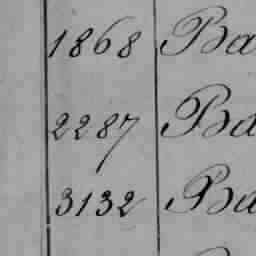 1868 Ba
2287 Ba
3132 Ba